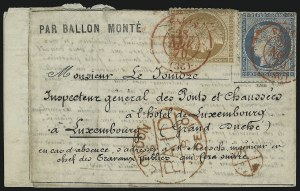 PAR BALLON MONTÉ
Monsieur Le
Inspecteur général des Ponts et Chaussées
à l'hôtel de Luxembourg
à Luxembourg Grand Duché
en cas d'absence, s'adresser à ingénieur en
chef des Travaux publics qui fera suivre